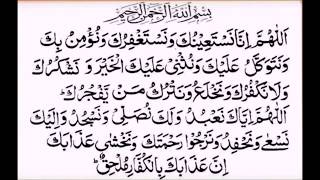 بِسْمِ اللّٰهِ الرَّحْمٰنِ الرَّحِيْمِ
اَللّٰهُمَّ اِنَّا نَسْتَعِيْنُكَ وَنَسْتَغْفِرُكَ وَنُؤْمِنُ بِكَ
وَنَتَوَكَّلُ عَلَيْكَ وَنُثْنِيْ عَلَيْكَ الْخَيْرَ وَنَشْكُرُكَ
وَلَا نَكْفُرُكَ وَنَخْلَعُ وَنَتْرُكُ مَنْ يَّفْجُرُكَ
اَللّٰهُمَّ اِيَّاكَ نَعْبُدُ وَلَكَ نُصَلِّيْ وَنَسْجُدُ وَاِلَيْكَ
نَسْعٰى وَنَحْفِدُ وَنَرْجُوْا رَحْمَتَكَ وَنَخْشٰى عَذَابَكَ
اِنَّ عَذَابَكَ بِالْكُفَّارِ مُلْحِقٌ